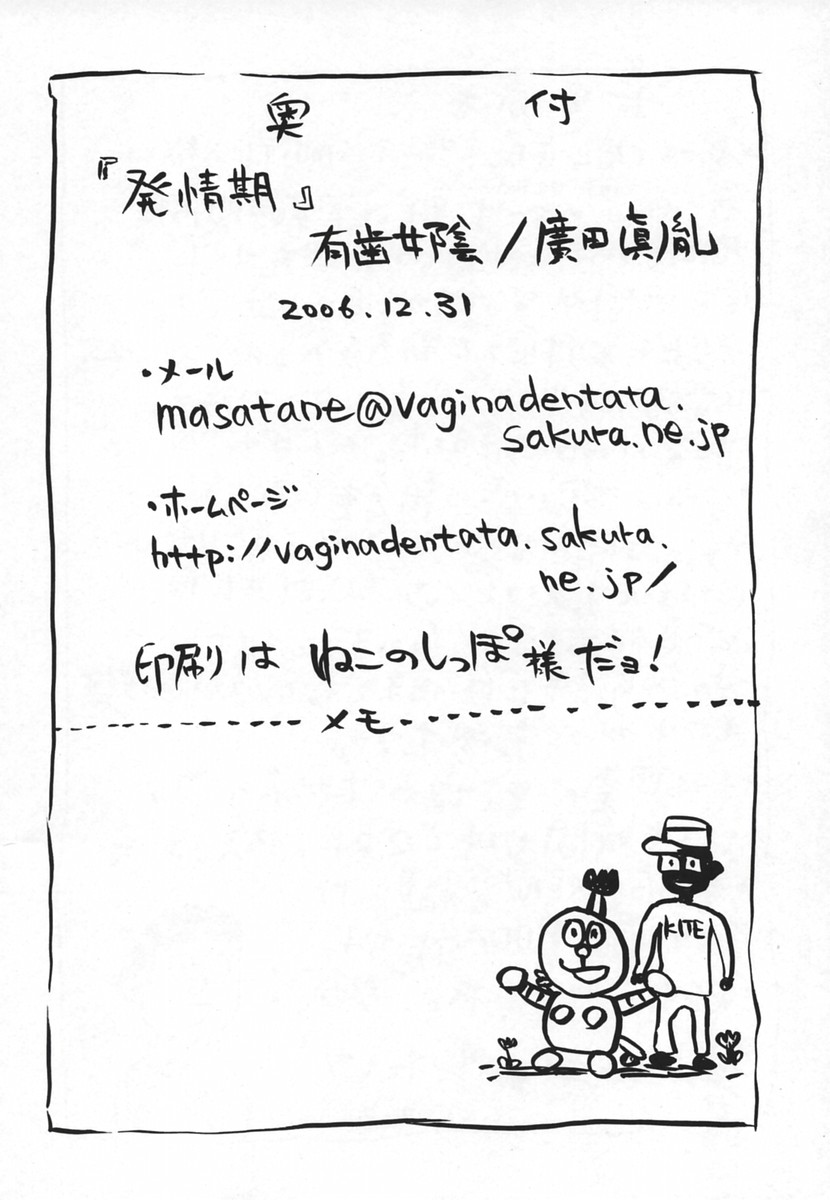 奥付
『発情期』
有歯女陰/廣田眞胤
2006.12.31
・メール
masatane@vaginadentata.
sakura.ne.jp
・ホームページ
http://vaginadentata.sakura.
ne.jp/
印刷は ねこのしっぽ様 だョ!
メモ
KITE